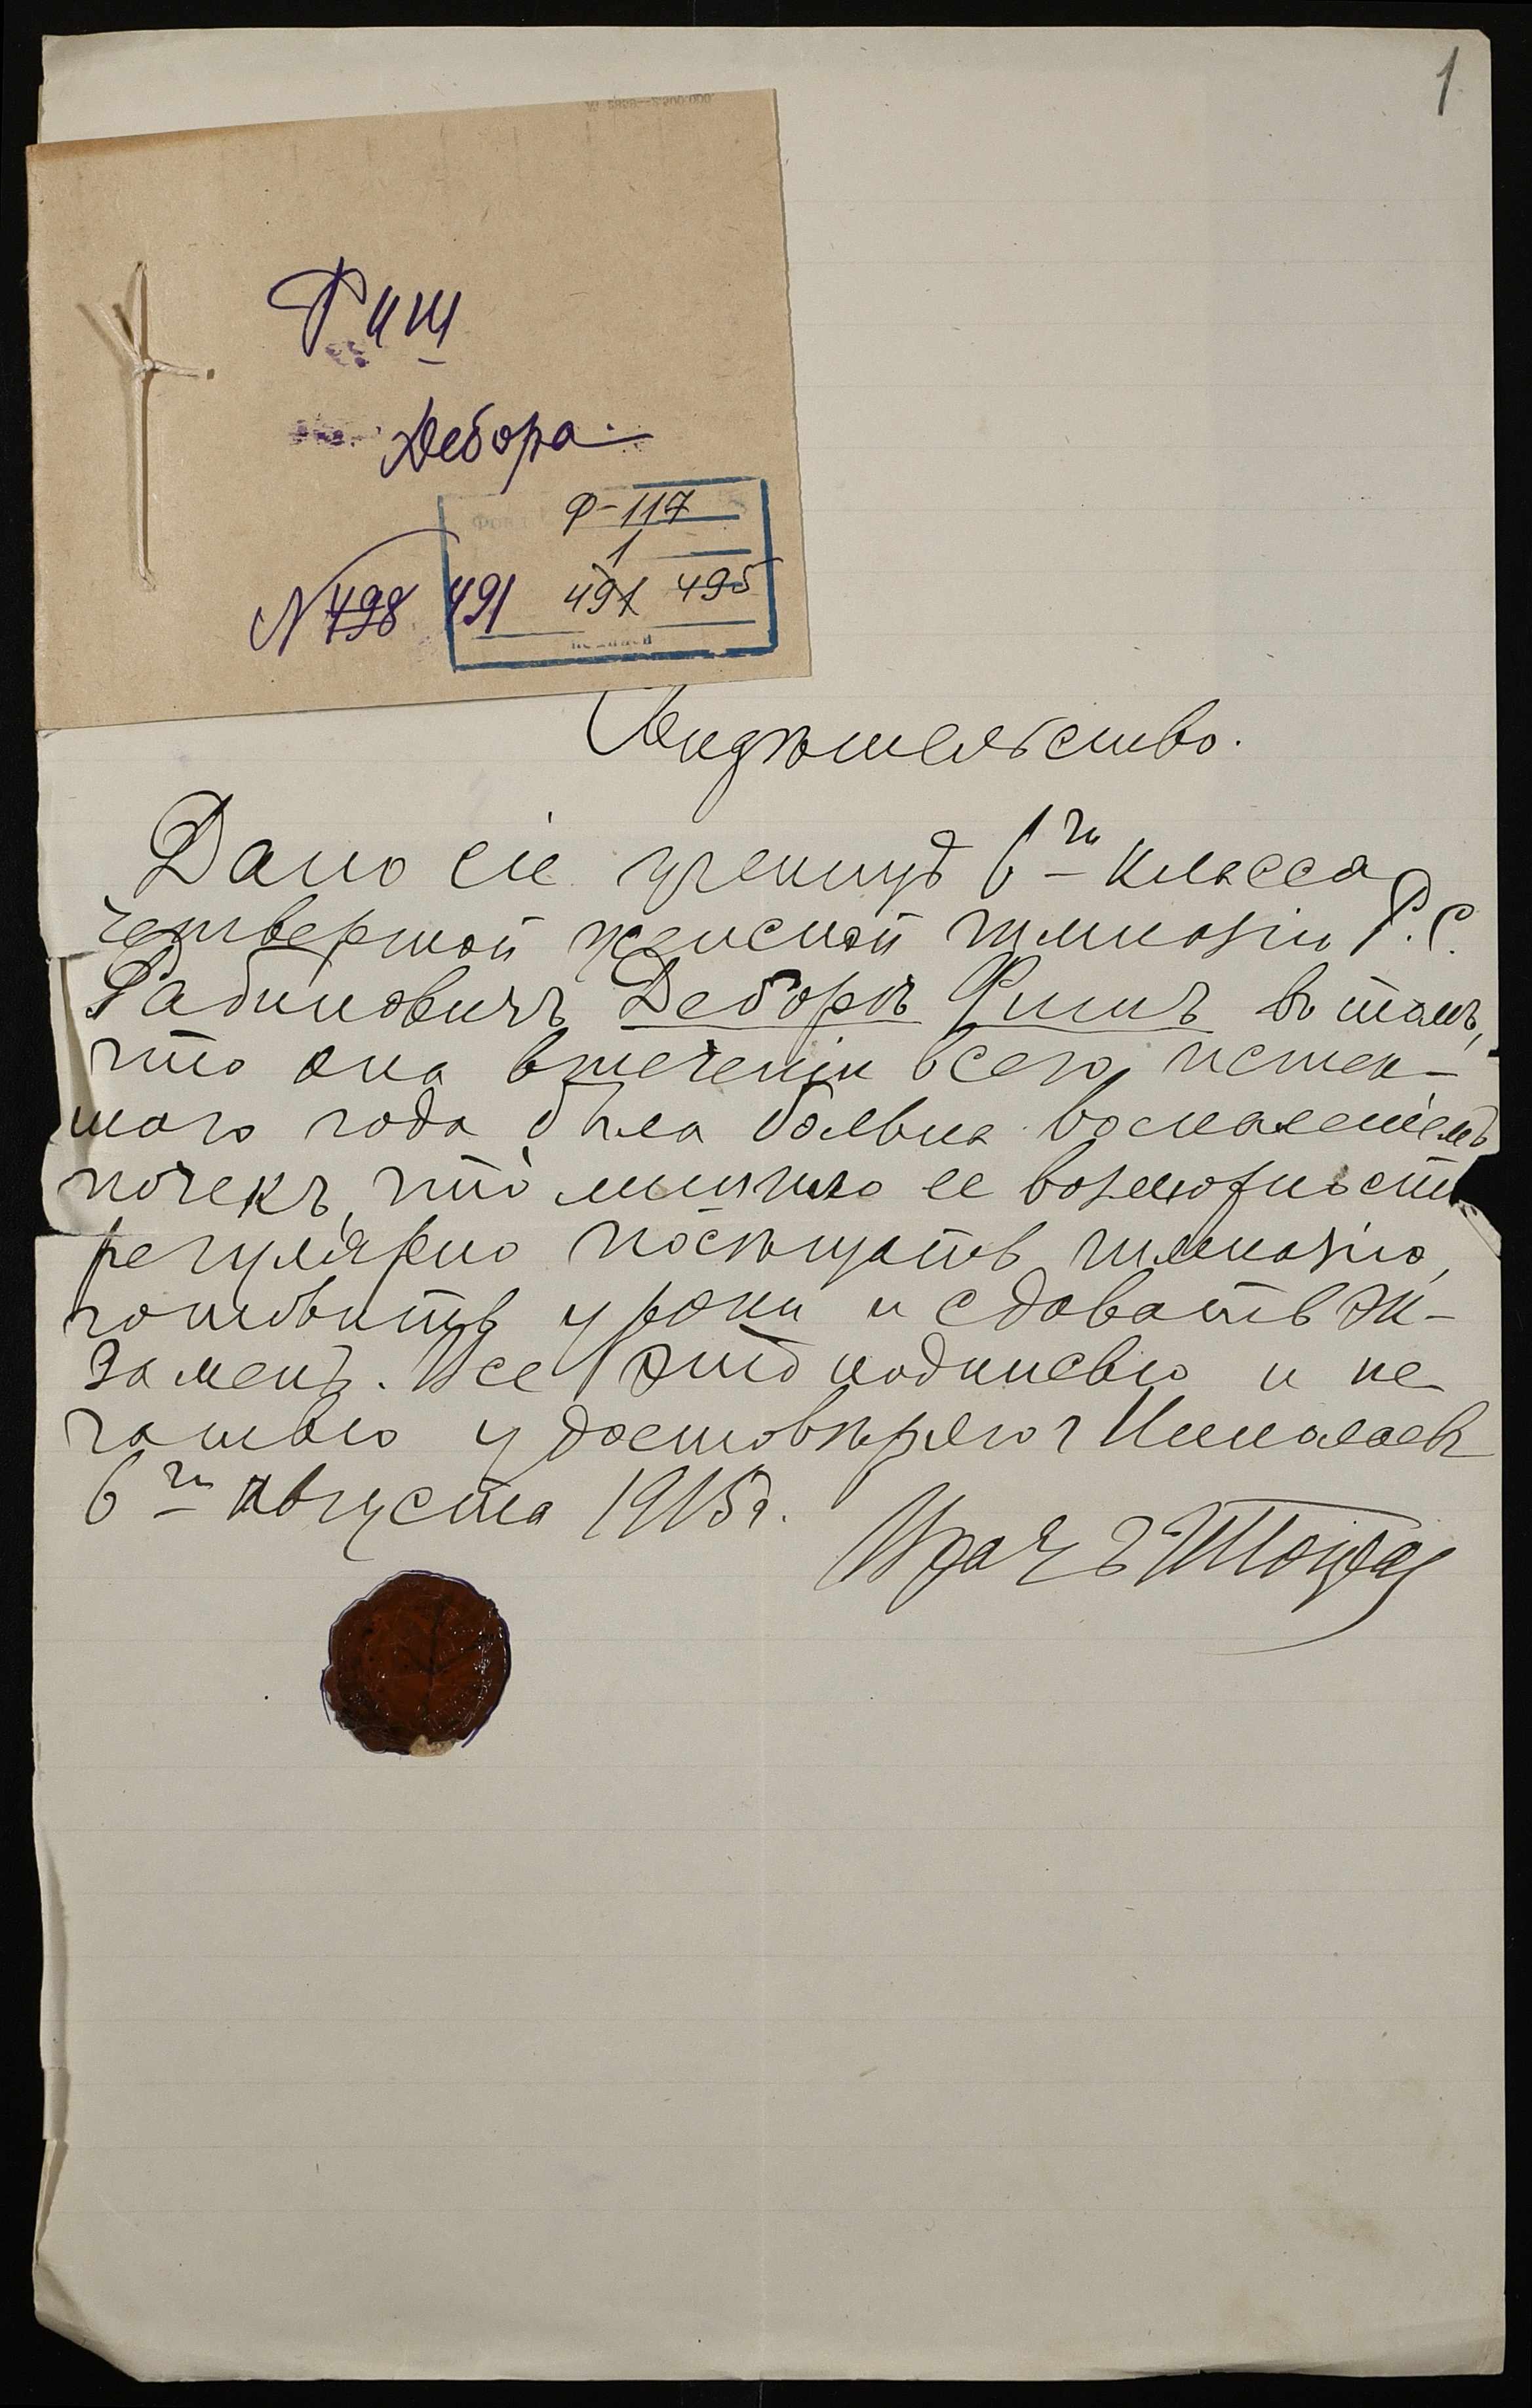 1
Фиш
Дебора.
Ф-117
1
N 498 491 497 495
Свидѣтельство.
Дано сіе ученицѣ 6го класса
четвертой женской гимназіи Р. С.
Рабиновичъ Деборѣ Фишъ въ томъ,
что она втеченіи всего истек-
шаго года была больна воспаленіемъ
почекъ, что лишило ее возможности
регулярно посѣщать гимназію,
готовить уроки и сдавать эк-
заменъ. Все это подписью и пе
чатью удостовѣряю г Николаевъ
6го Августа 1915 г.
Врачъ